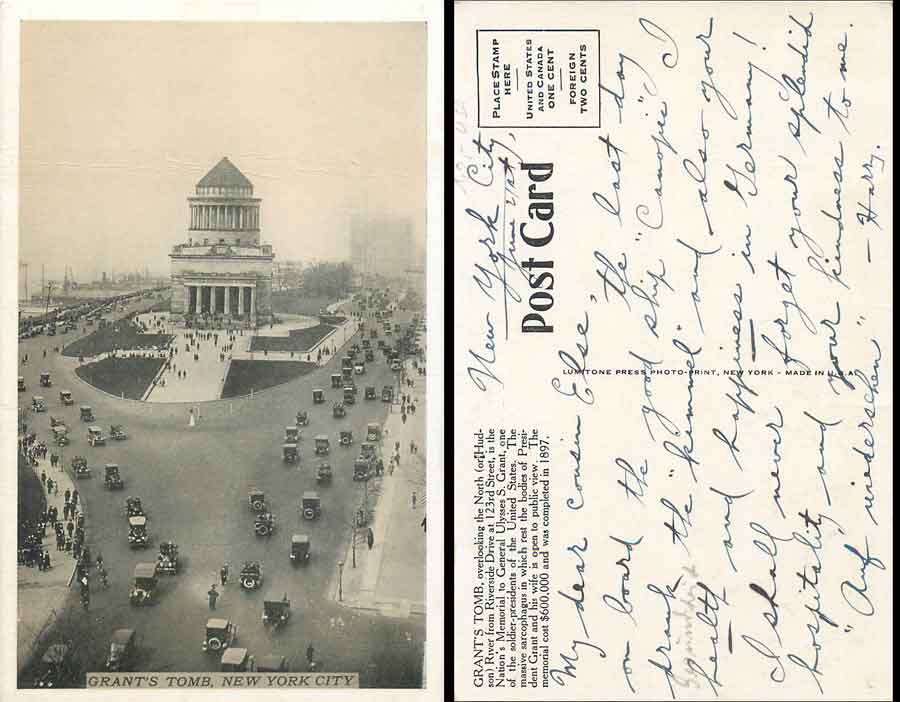 GRANT'S TOMB, NEW YORK CITY
PLACE STAMP
HERE
UNITED STATES
AND CANADA
ONE CENT
FOREIGN
TWO CENTS
Post Card
LUMITONE PRESS PHOTO-PRINT, NEW YORK - MADE IN U.S.A.
GRANT'S TOMB, overlooking the North (or Hud-
son) River from Riverside Drive at 123rd Street, is the
Nation's Memorial to General Ulysses S. Grant, one
of the soldier-presidents of the United States. The
massive sarcophagus in which rest the bodies of Presi-
dent Grant and his wife is open to public view. The
memorial cost $600,000 and was completed in 1897.
New York City
June 21st,
My dear cousin Else,
on board the good ship "Canopic" I
the last day
drank the "kümmel" and also your
health and happiness in Germany!
I shall never forget your splendid
hospitality and your kindness to me.
"Auf wiedersehen" - Harry.